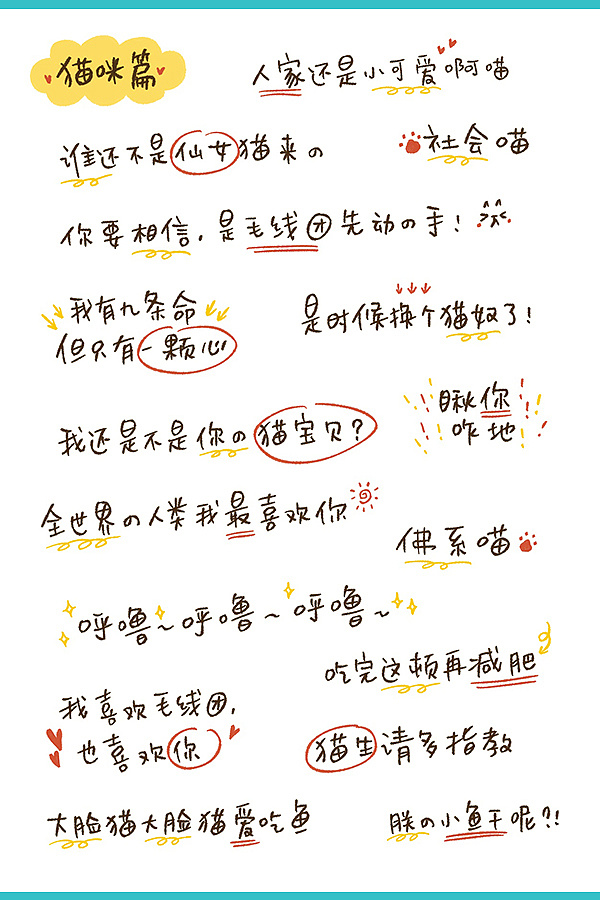 猫咪篇
人家还是小可爱啊喵
谁还不是仙女猫来の
社会喵
你要相信，是毛线团先动の手！
我有九条命
但只有一颗心
是时候换个猫奴了！
我还是不是你の猫宝贝？
瞅你
咋地
全世界の人类我最喜欢你
佛系喵
呼噜~呼噜~呼噜~
吃完这顿再减肥
我喜欢毛线团，
也喜欢你
猫生请多指教
大脸猫大脸猫爱吃鱼
朕の小鱼干呢?!